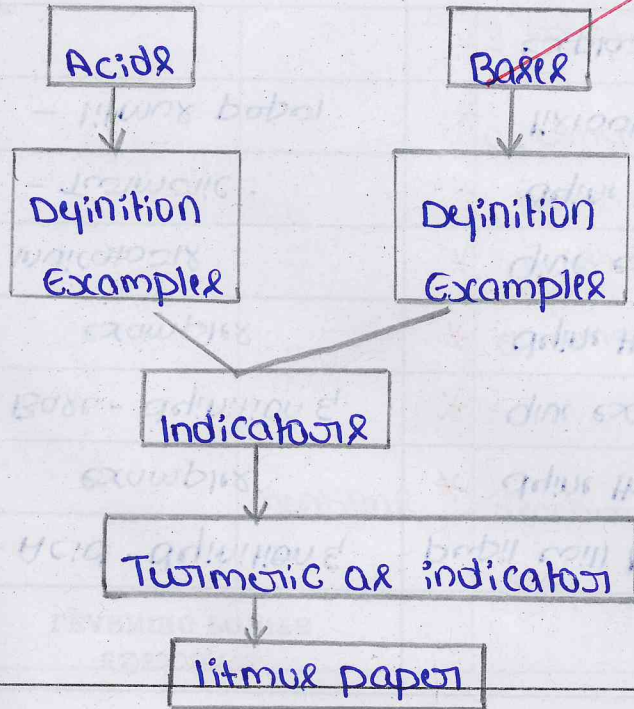 Acids
Bases
Definition
Examples
Definition
Examples
Indicators
Turmeric as indicator
litmus paper